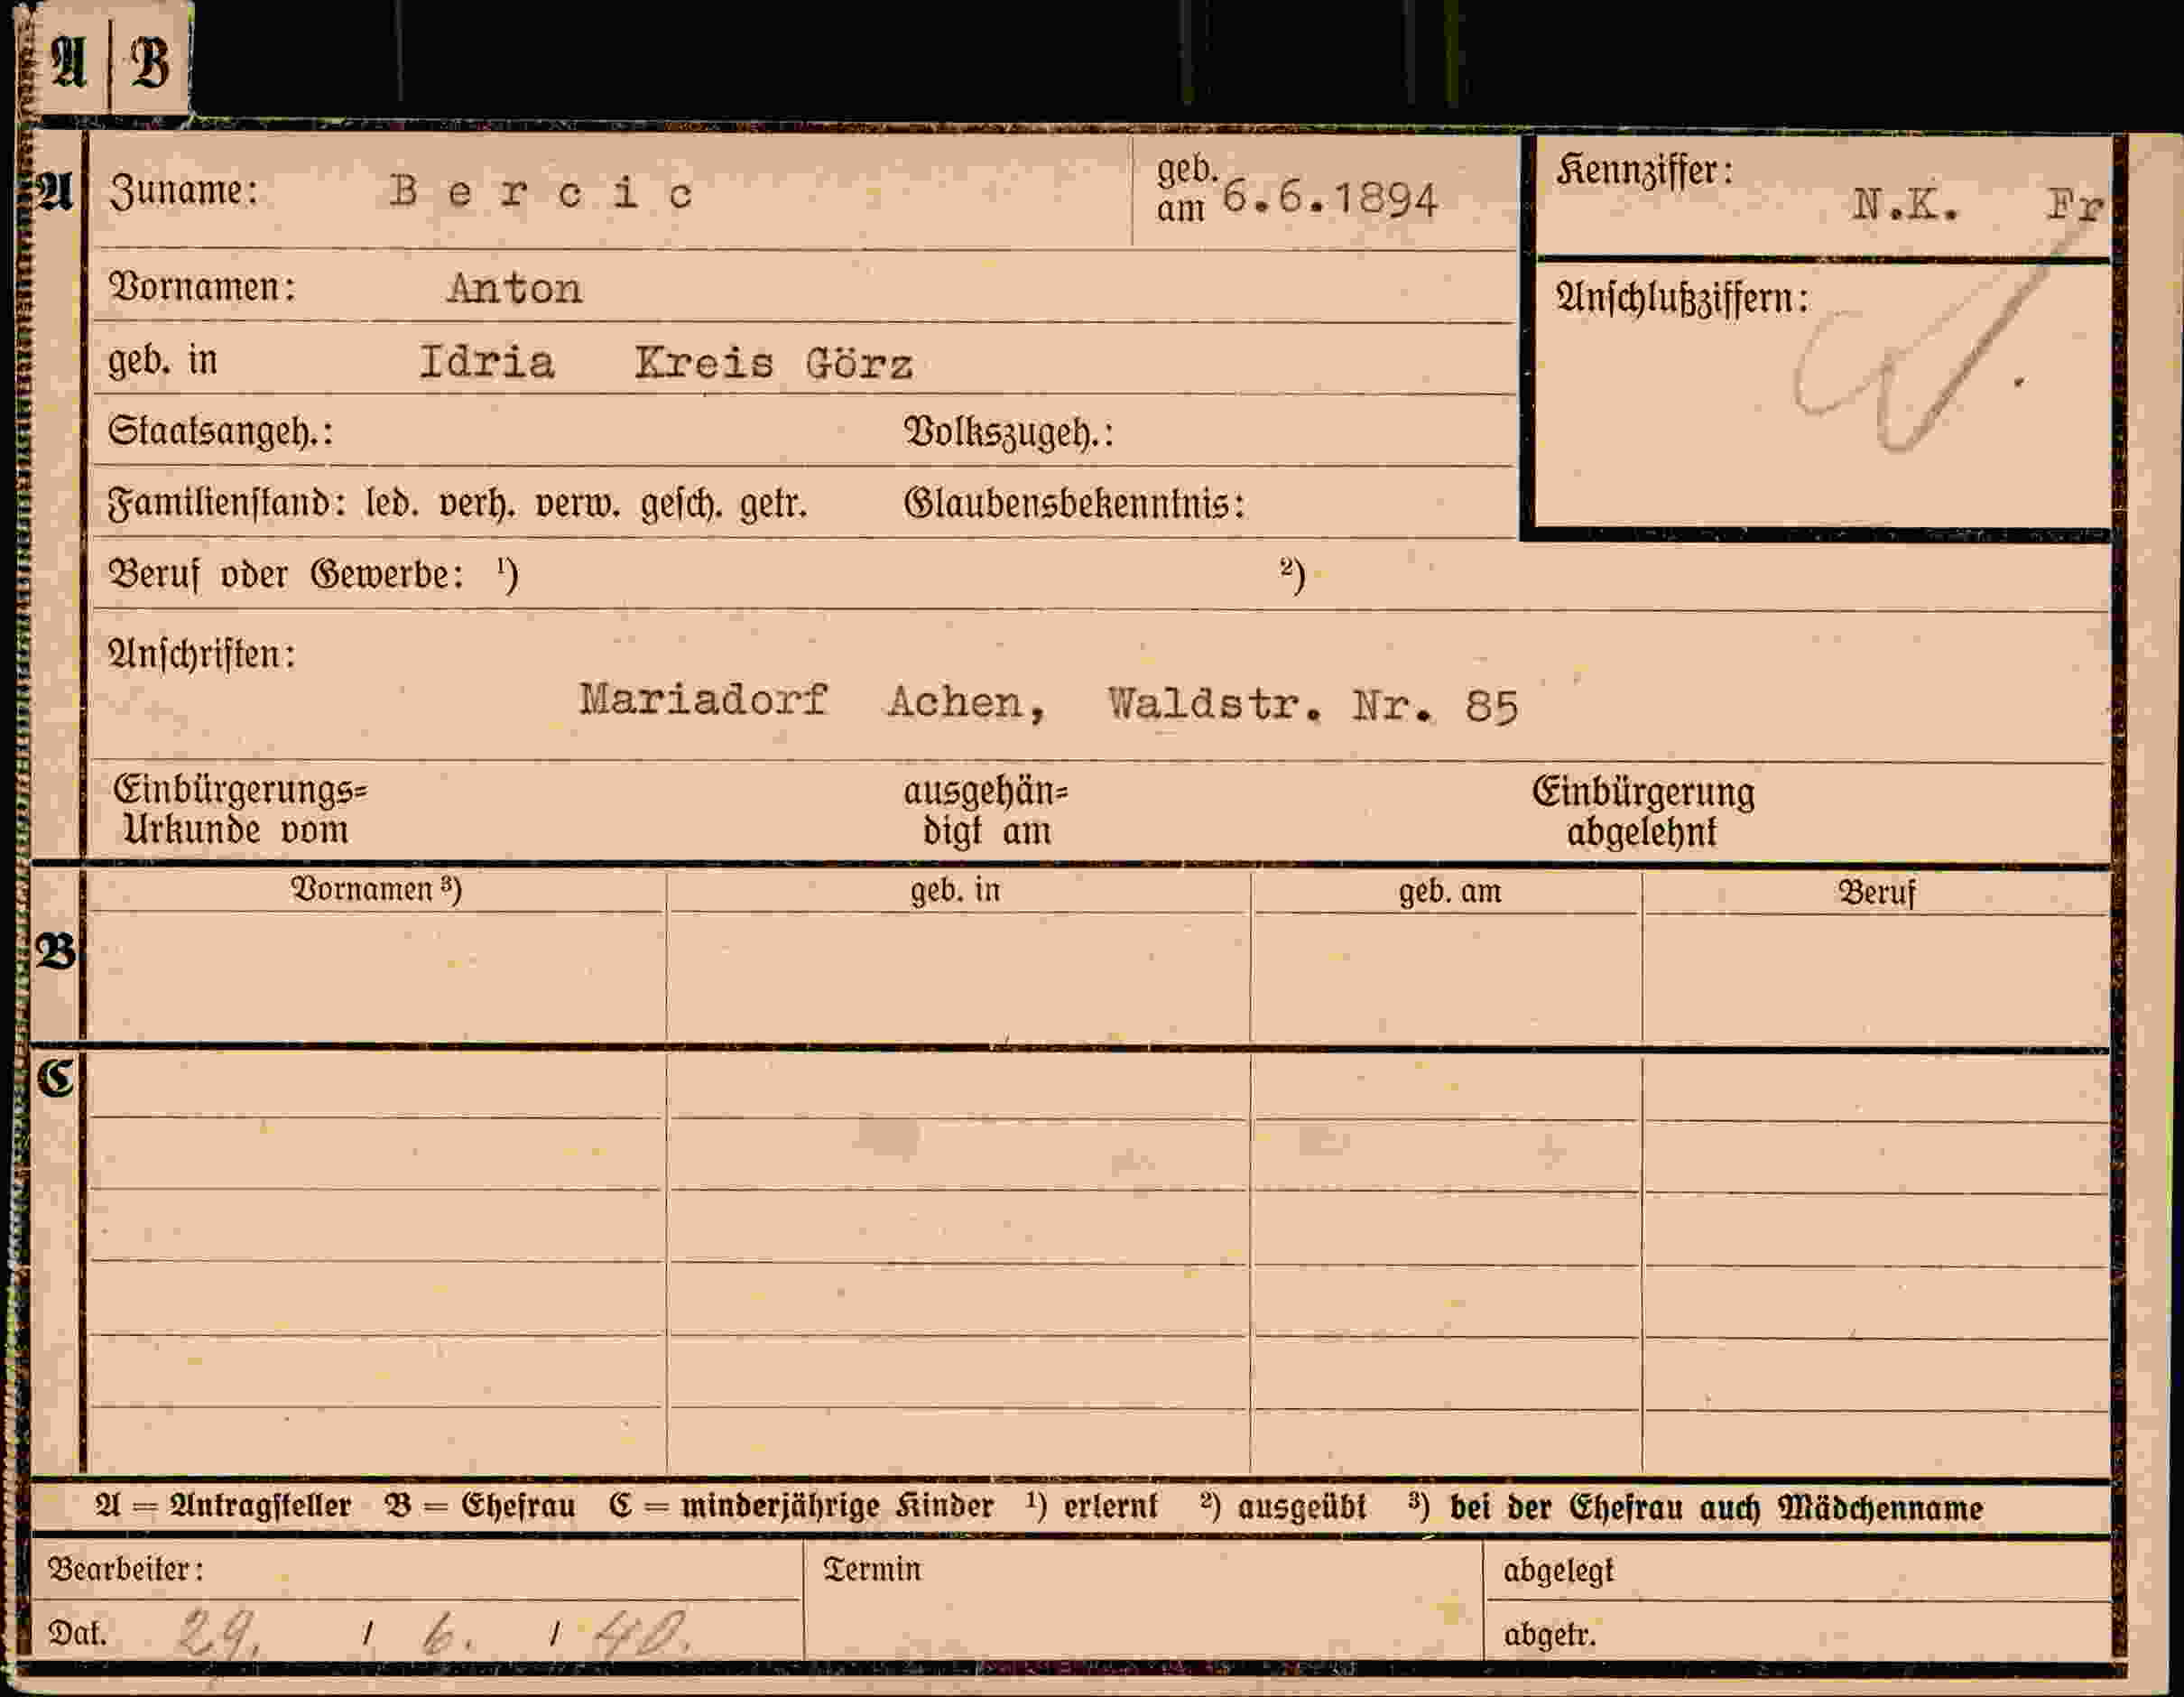 A | B
A Zuname: Bercic geb. am 6.6.1894 Kennziffer: N.K. Fr
Vornamen: Anton
Anschlußziffern:
geb. in Idria Kreis Görz
Staatsangeh.: Volkszugeh.:
Familienstand: led. verh. verw. gesch. getr. Glaubensbekenntnis:
Beruf oder Gewerbe: ¹) ²)
Anschriften:
Mariadorf Achen, Waldstr. Nr. 85
Einbürgerungs= ausgehän= Einbürgerung
Urkunde vom digt am abgelehnt
Vornamen ³) geb. in geb. am Beruf
B
C
A = Antragsteller B = Ehefrau C = minderjährige Kinder ¹) erlernt ²) ausgeübt ³) bei der Ehefrau auch Mädchenname
Bearbeiter: Termin abgelegt
Dat. 29. / 6. / 40. abgetr.